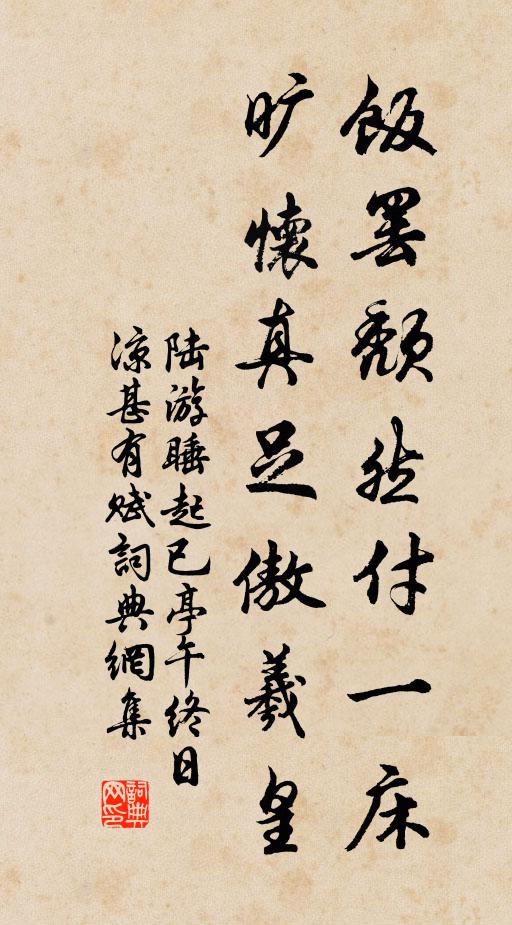 飯罢頹然付一床
旷懷真足傲羲皇
陆游睡起已亭午终日
凉甚有赋詞典網集
詞典网印